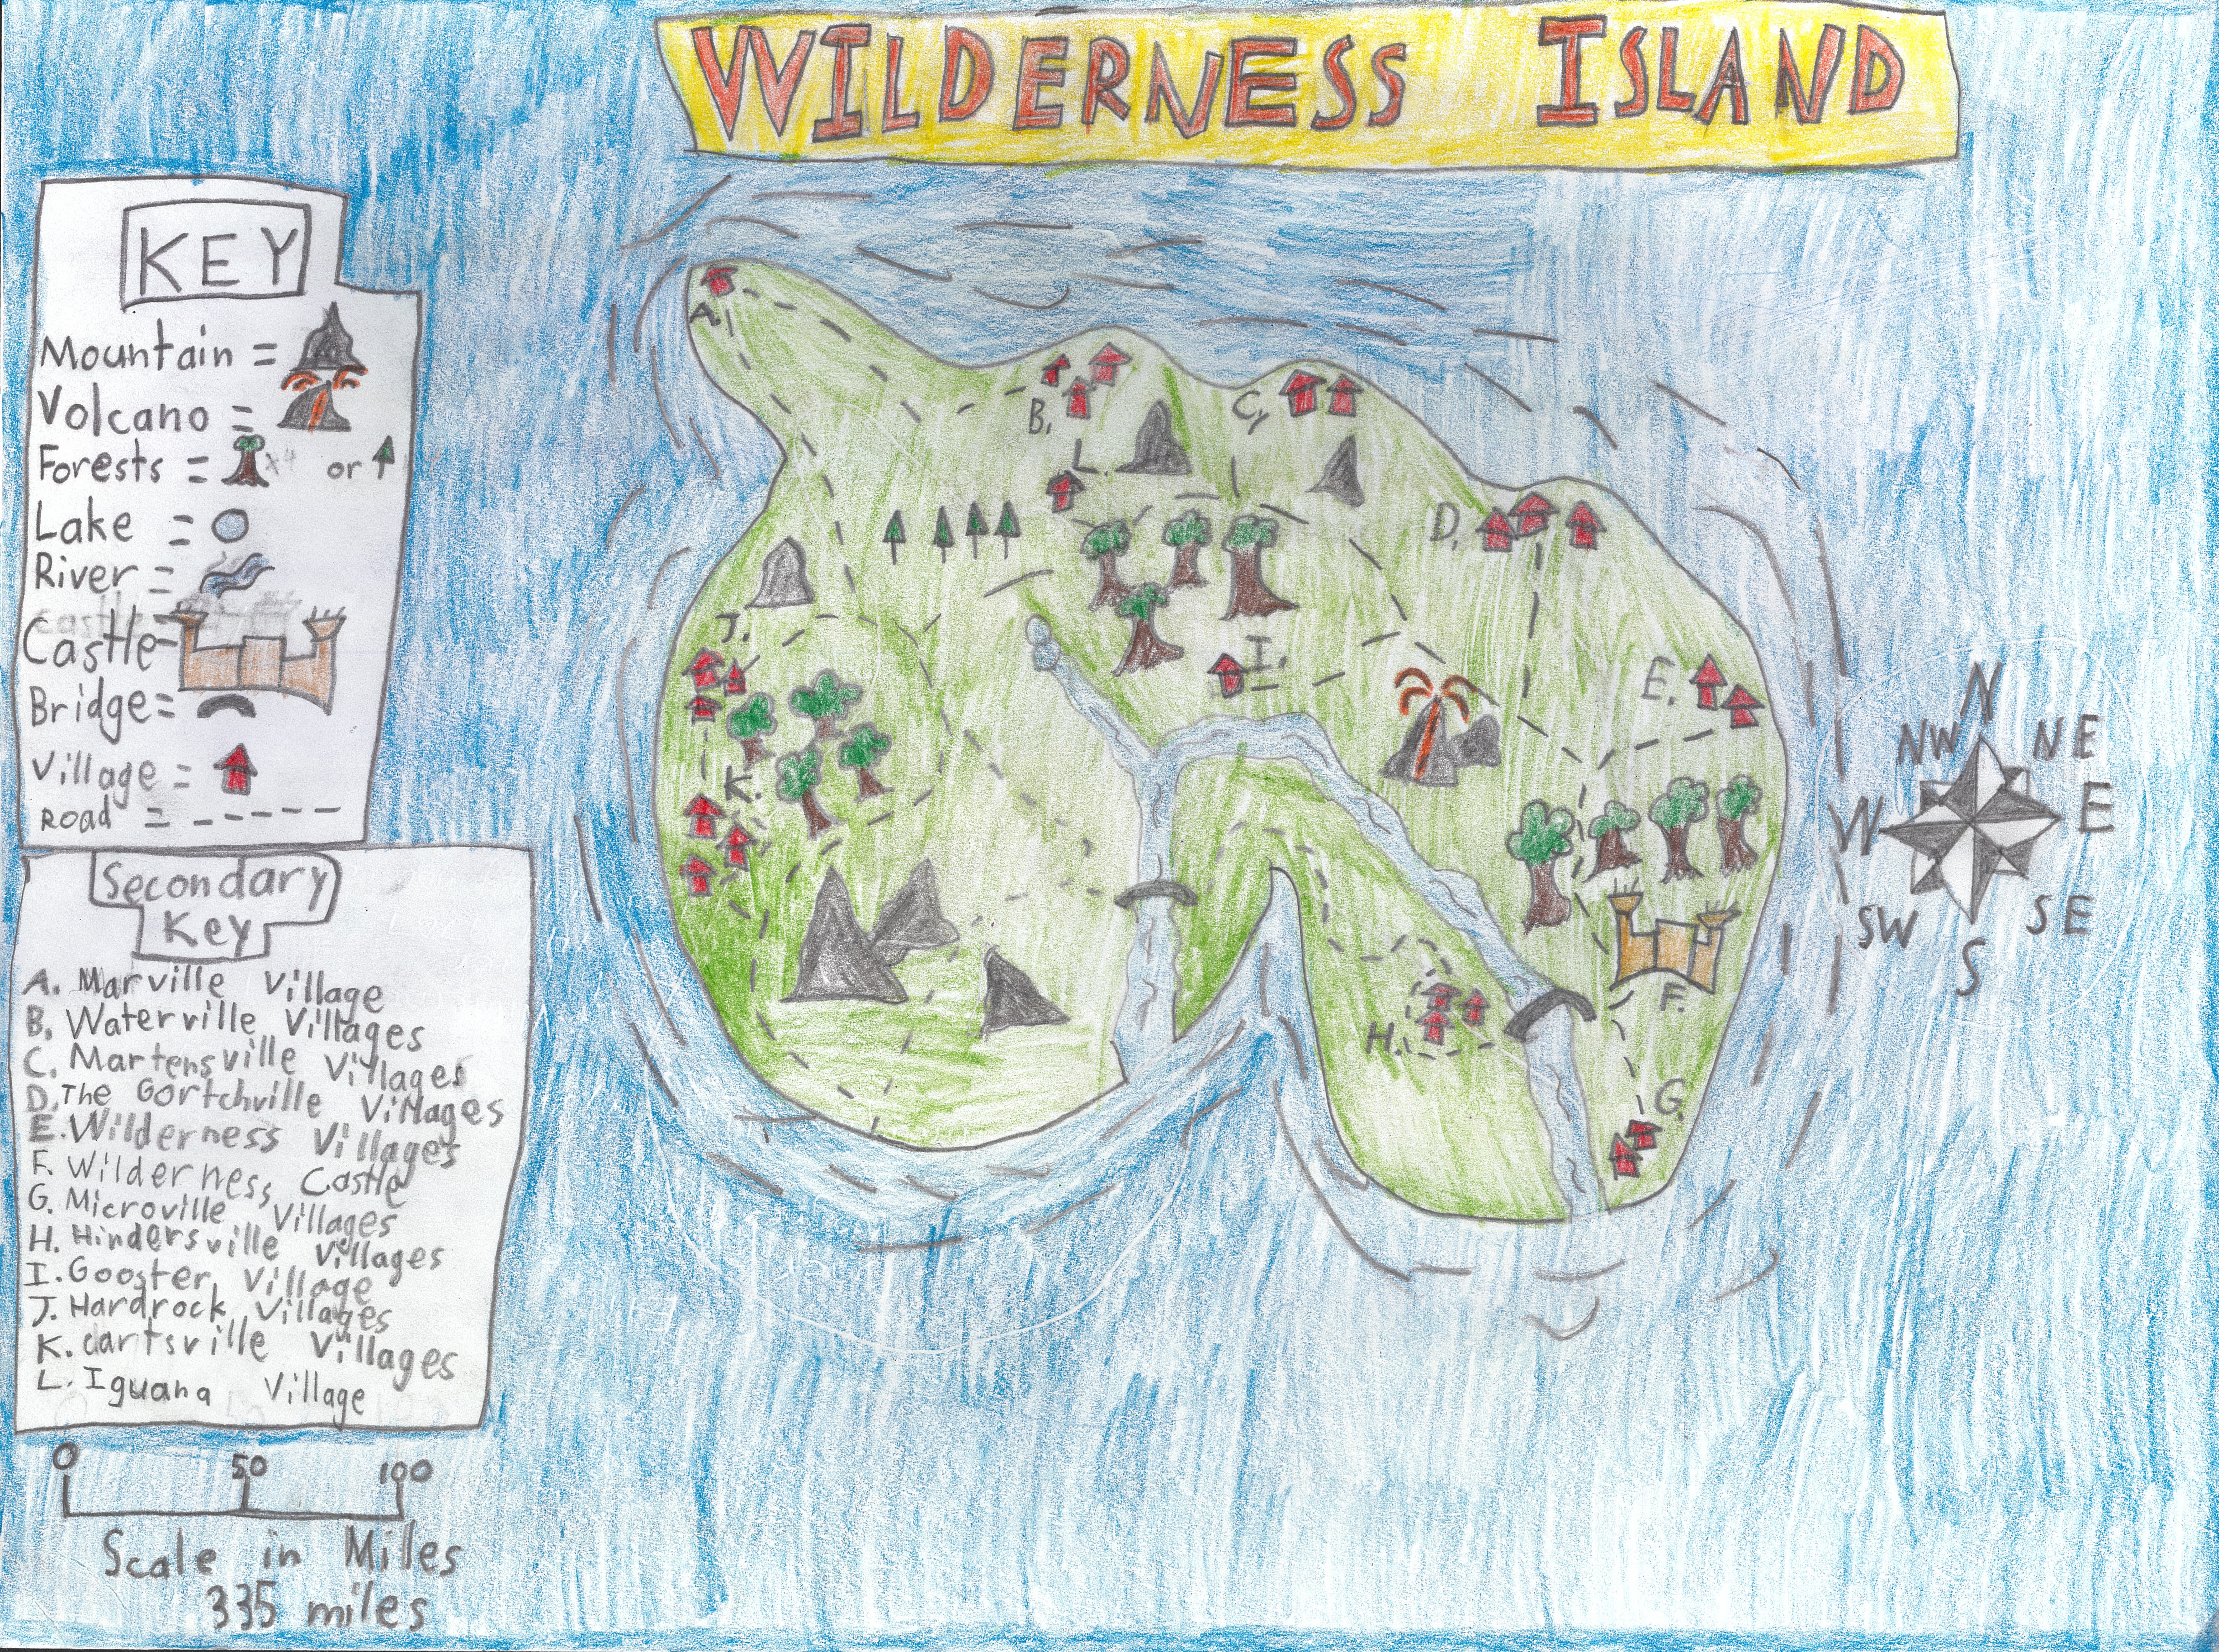 WILDERNESS ISLAND
KEY
Mountain =
Volcano =
Forests = x4 or
Lake =
River =
Castle
Castle-
Bridge=
Village =
ROAD =
Secondary
Key
A. Marville Village
B. Waterville Villages
C. Martensville Villages
D. The Gortchville Villages
E. Wilderness Villages
F. Wilderness Castle
G. Microville Villages
H. Hindersville Villages
I. Gooster Village
J. Hardrock Villages
K. Cartsville Villages
L. Iguana Village
0 50 100
Scale in Miles
335 miles
A.
B.
C,
L.
D.
J.
I.
E.
K.
F.
H.
G.
N
NW NE
W E
SW SE
S